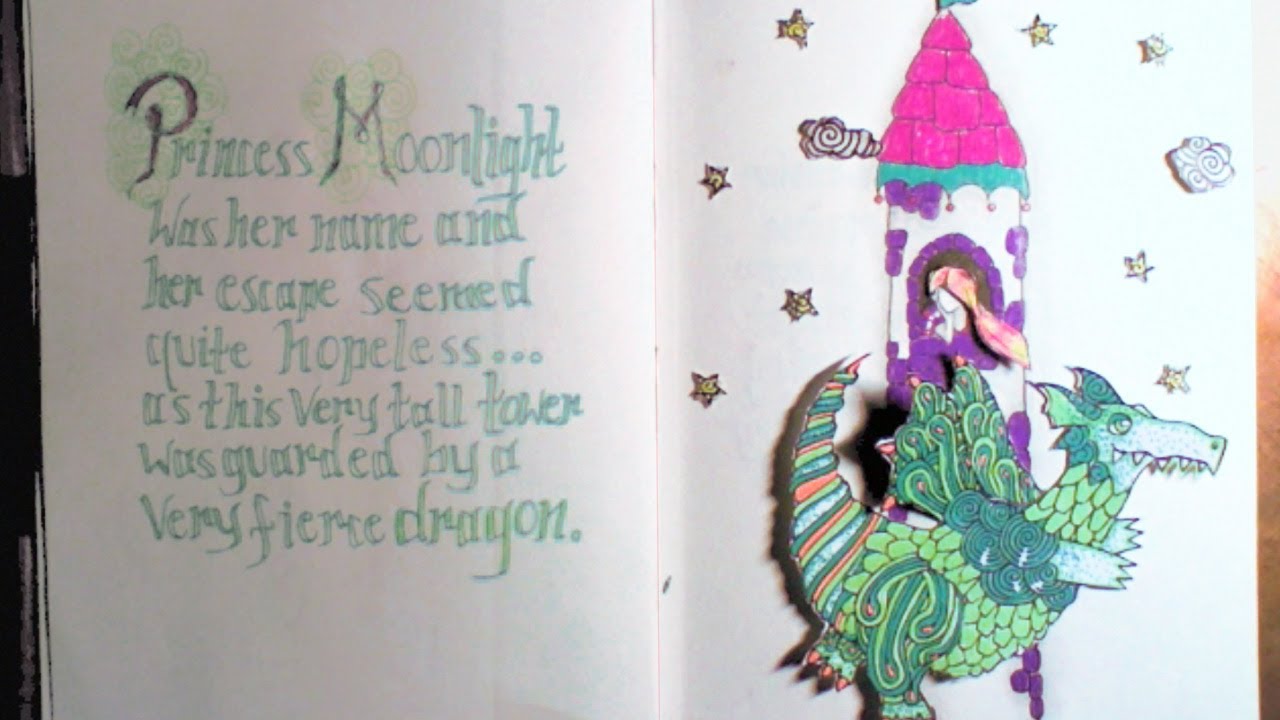 Princess Moonlight
Was her name and
her escape seemed
quite hopeless...
as this very tall tower
was guarded by a
very fierce dragon.